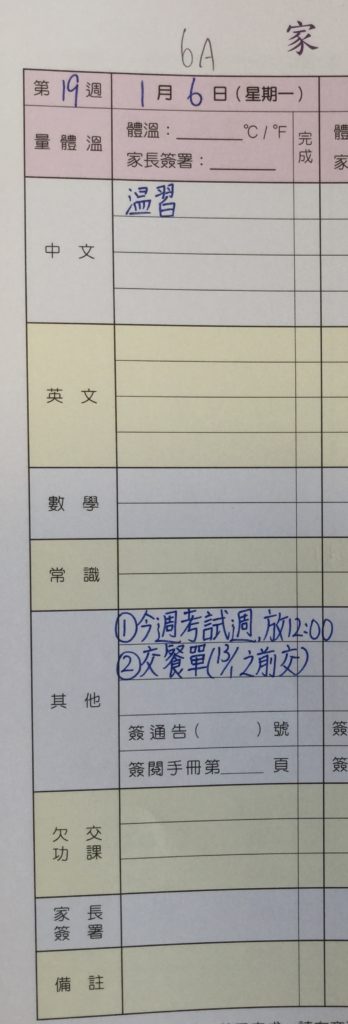 6A
家
第19週 1月6日(星期一)
量體溫 體溫：______°C/°F 完成 體
家長簽署：______ 家
中文 温習
英文
數學
常識
其他 ①今週考試週,放12:00
②交餐單(13/1之前交)
簽通告( )號 簽
簽閱手冊第____頁 簽
欠交功課
家長簽署
備註